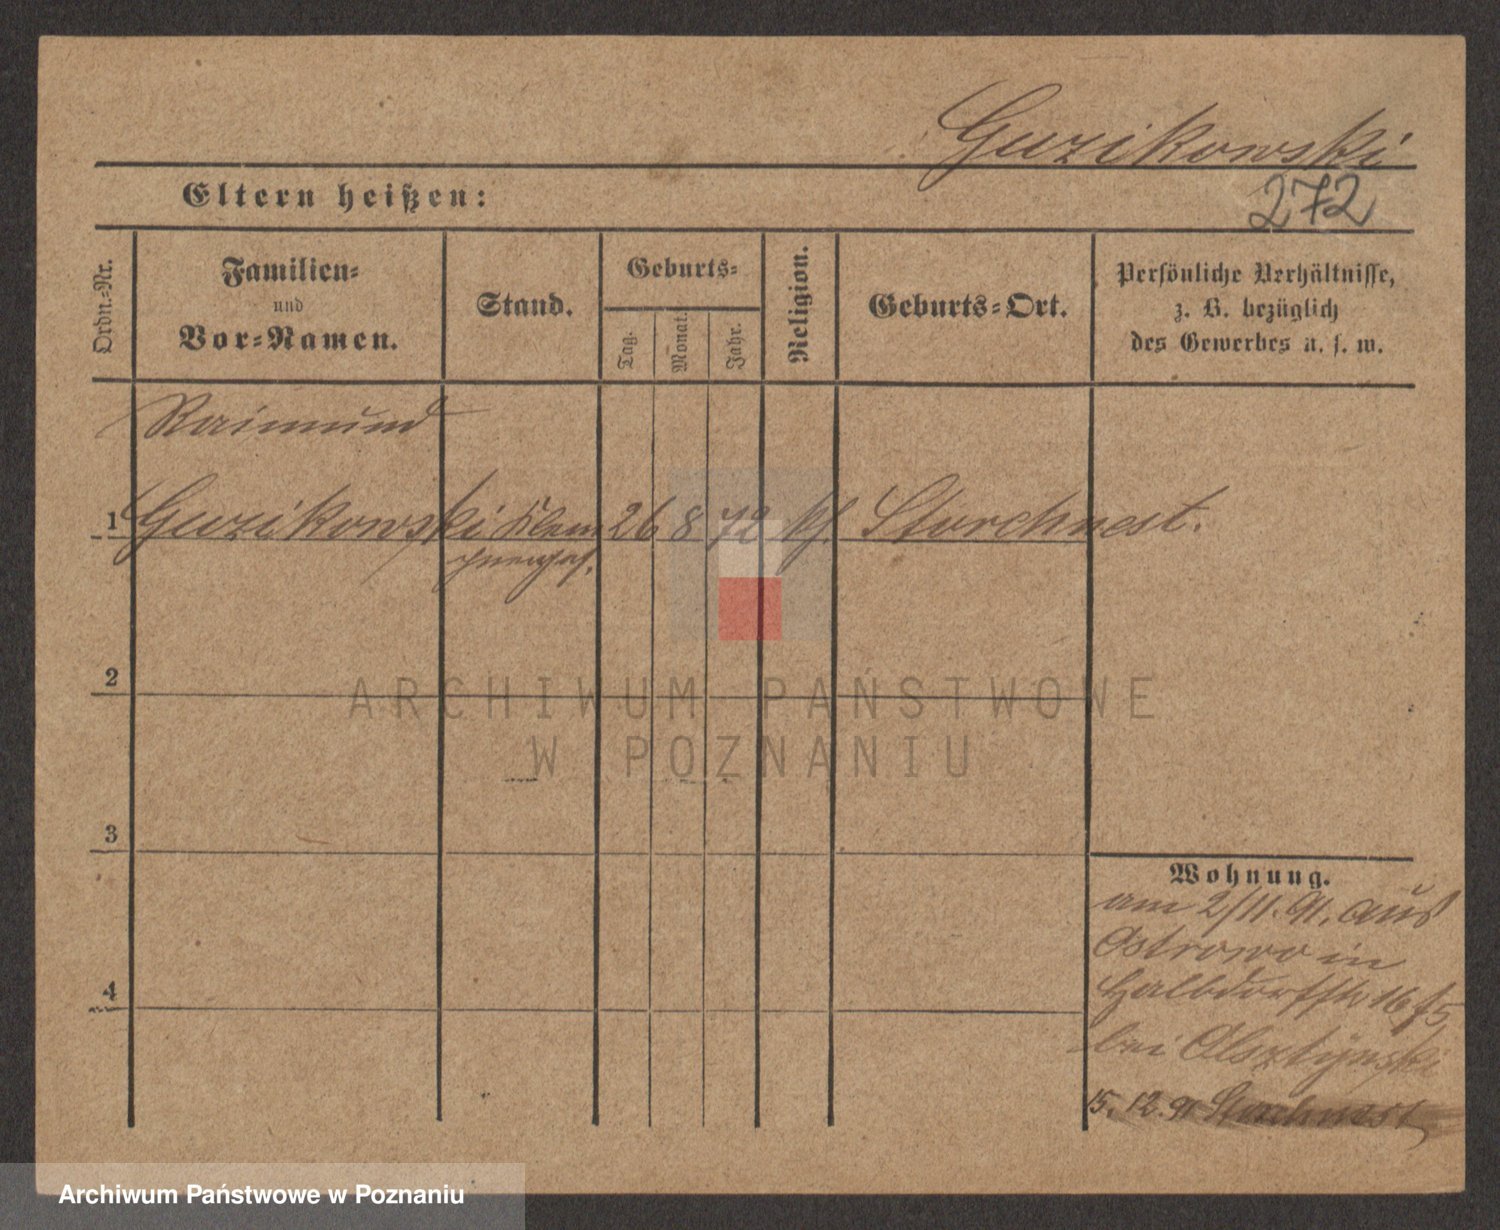 Guzikowski
Eltern heißen:
272
Ordn.-Nr.
Familien-
und
Vor-Namen.
Stand.
Geburts-
Tag.
Monat.
Jahr.
Religion.
Geburts-Ort.
Persönliche Verhältnisse,
z. B. bezüglich
des Gewerbes u. s. w.
Raimund
1 Guzikowski Klem 26 8 72 kf. Storchnest.
2
3
4
Wohnung.
am 2/11. 91. aus
Ostrowo in
Halbdorfstr 16
bei Olsztynski
15. 12. 91 Storchnest
ARCHIWUM PAŃSTWOWE
W POZNANIU
Archiwum Państwowe w Poznaniu